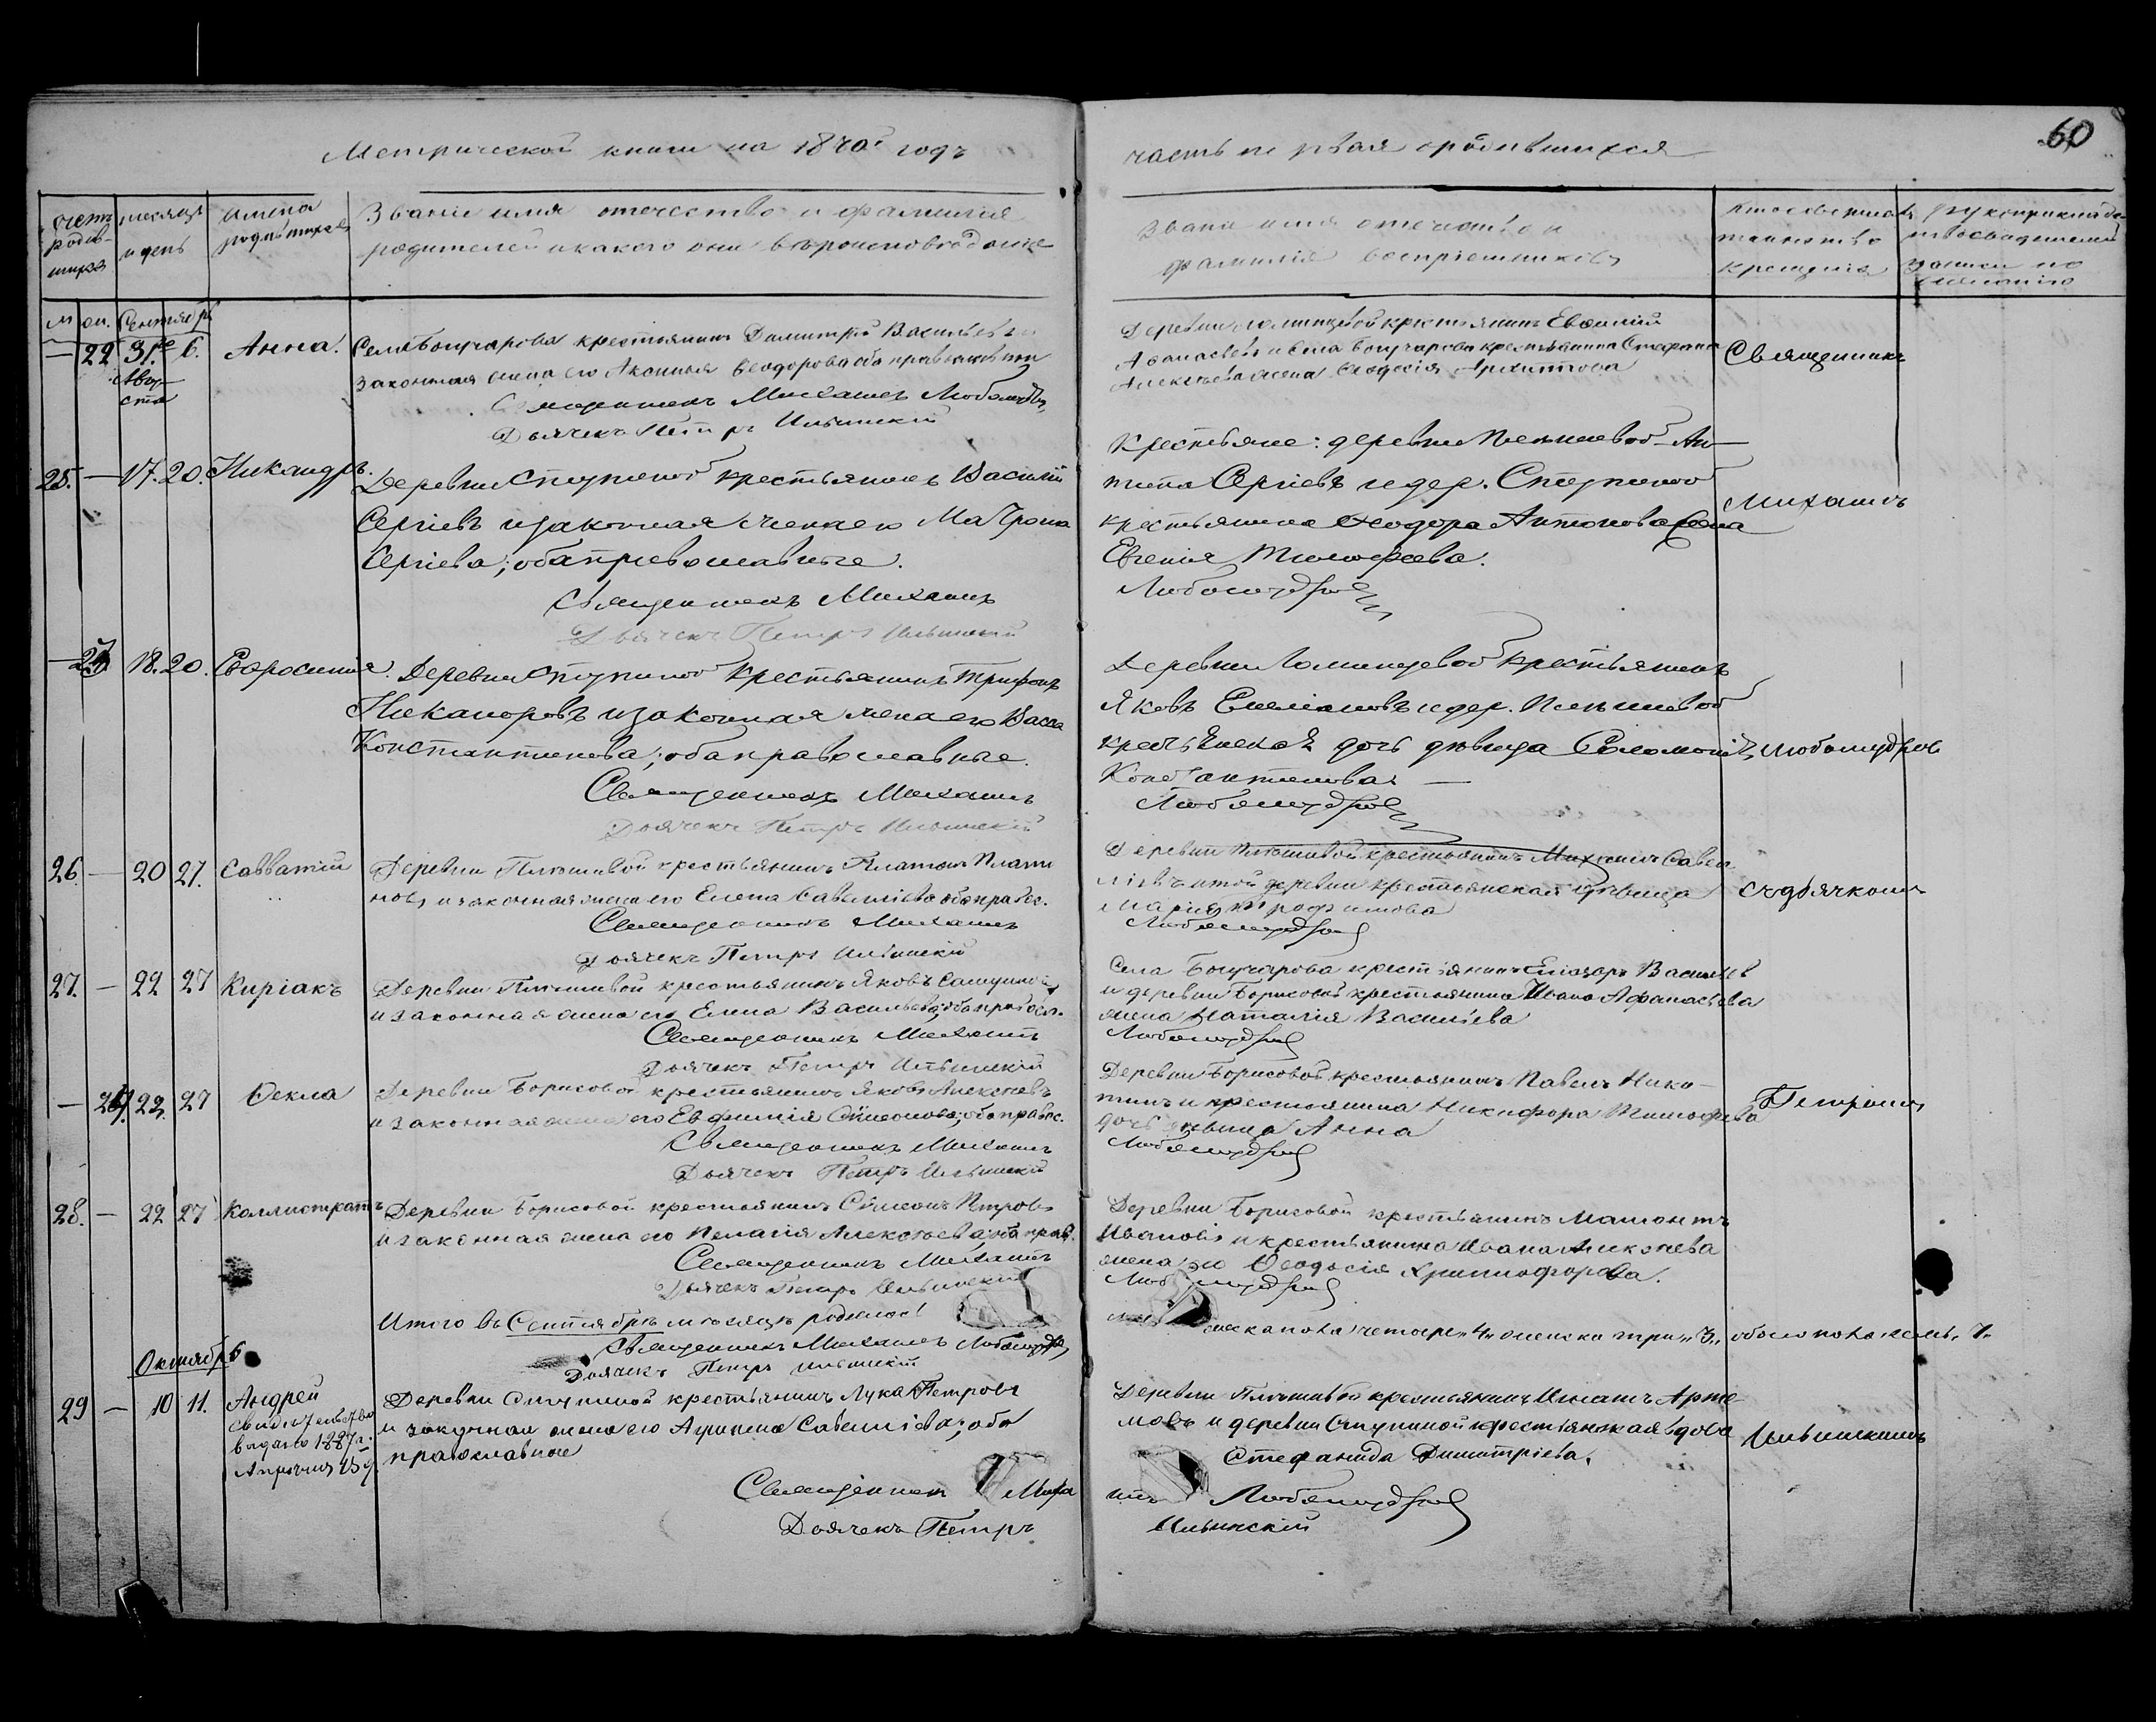 Метрической книги на 1870й годъ
часть первая о родившихся
60
счетъ родив-шихся
месяцъ и день
имена родившихся
Званіе имя отечество и фамилія
родителей и какого они вѣроисповѣданія
Званіе имя отечество и
фамилія воспріемниковъ
кто совершалъ
таинство
крещенія
рукоприклад-
ство свидетелей
записи по
желанію
м
Сентябрь
— 22 31го 6. Анна. Села Бочучарова крестьянинъ Димитрій Васильевъ и
Авгу-
ста
законная жена его Аксинья Ѳеодорова оба православныи
Священникъ Михаилъ Любомудровъ
Дьячекъ Петръ Ильинскій
крестьянинъ Евѳимій
Аѳанасьевъ и села Бочучарова крестьянина Стефана
Алексѣева жена Ѳеодосія Архиппова
Священникъ
25. — 17. 20. Никандръ.
Деревни Ступиной крестьянинъ Василій
Сергіевъ и законная жена его Матрона
Сергіева; оба православные.
Священникъ Михаилъ
Дьячекъ Петръ Ильинскій
Крестьяне: деревни Плѣшивой Ан-
типа Сергіевъ и дер. Ступиной
крестьянина Ѳеодора Антонова жена
Евгенія Тимофеева.
Любомудровъ
Михаилъ
— 18. 20. Евфросинія. Деревни Ступиной крестьянинъ Трифонъ
Никаноровъ и законная жена его Васса
Константинова; оба православные.
Священникъ Михаилъ
Дьячекъ Петръ Ильинскій
крестьянинъ
Яковъ Емеліановъ и дер. Плѣшивой
крестьянская дочь дѣвица Соломонія
Константинова —
Любомудровъ
Любомудровъ
26. — 20 27. Савватій Деревни Плѣшивой крестьянинъ Платонъ Плато
новъ, и законная жена его Елена Савельіева оба правос.
Священникъ Михаилъ
Дьячекъ Петръ Ильинскій
Деревни Плѣшивой крестьянинъ Михаилъ Савел
ліевъ и той деревни крестьянская дѣвица
Марія Трофимова
Любомудровъ
съ дьячкомъ
27. — 22 27 Киріакъ Деревни Плѣшивой крестьянинъ Яковъ
и законная жена его Елена Васильева; оба правосл.
Священникъ Михаилъ
Дьячекъ Петръ Ильинскій
Села Бочучарова крестьянинъ Елiазаръ Васильевъ
и деревни Борисовой крестьянина Ивана Афанасьева
жена Наталія Васильева
Любомудровъ
— 22. 27 Ѳекла Деревни Борисовой крестьянинъ Яковъ Алексѣевъ
и законная жена его Евфимія Сѵмеонова; оба правос.
Священникъ Михаилъ
Дьячекъ Петръ Ильинскій
Деревни Борисовой крестьянинъ Павелъ Ники-
тинъ и крестьянина Никифора Тимофеева
дочь дѣвица Анна
Любомудровъ
Петромъ
28. — 22 27 Каллистратъ Деревни Борисовой крестьянинъ Сѵмеонъ Петровъ
и законная жена его Пелагія Алексѣева; оба прав.
Священникъ Михаилъ
Дьячекъ Петръ Ильинскій
Деревни Борисовой крестьянинъ Мамонтъ
Ивановъ и крестьянина Ивана Алексѣева
жена его Ѳеодосія Христофорова.
Любомудровъ
Итого въ Сентябрѣ мѣсяцѣ родилось
мужеска пола четыре „4„ женска три „3„ обоего пола семь „7„
Священникъ Михаилъ Любомудровъ
Дьячекъ Петръ Ильинскій
Октябрь
29 — 10 11. Андрей
свидетельство
выдано 1887 г.
Апрѣля 15 д.
Деревни Ступиной крестьянинъ Лука Петровъ
и законная жена его Акулина Савельіева; оба
православные
Священникъ Миха
Дьячекъ Петръ
Деревни Плѣшивой крестьянинъ Игнатъ Арте
мовъ и деревни Ступиной крестьянская вдова
Стефанида Димитріева.
илъ Любомудровъ
Ильинскій
Ильинскимъ